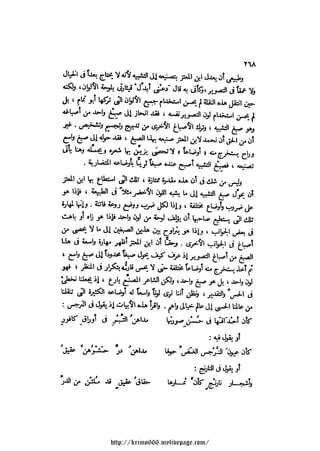 ٢٦٨
وطبيعي أن يعدل ابن المعتز بتصنيعه إلى التشبيه لأنه لا يحتاج بعداً فى الخيال
ولا عمقاً فى التصوير، وكأنى به قال دعنى أبدل قيثارتى بلوحة الألوان، ولكنه
حين انتقل هذه النقلة لم يحسن استخدام جميع الألوان التى تركها أبو تمام، بل
لم يحسن استخدام لون التصوير نفسه، فقد انحاز إلى صبغ واحد من أصباغه
وهو صبغ التشبيه، وترك الأصباغ الأخرى من تدبيج وتجسيم وتشخيص. غير
أن من الحق أن نحمد لابن المعتز صنيعه بهذا الصبغ، فقد حوله إلى صبغ واسع
وراح يستخرج منه أوضاعاً لا تحصى يزين بها شعره ويجمله وهنا يأتى
تصنيعه، فصبغ التشبيه أصبح عنده صبغاً ثرياً بأوضاعه المتضاربة.
وليس من شك فى أن هذه مقدرة ممتازة، تلك التى استطاع بها ابن المعتز
أن يحول صبغ التشبيه إلى ما يشبه اللون الأخضر مثلاً فى الطبيعة، فإذا هو
على ضروب وأوضاع مختلفة، وإذا لكل ضرب ووضع روعة فاتنة. وإنها لمهارة
تلك التى يستطيع صاحبها أن يؤلف لوحة من لون واحد فإذا هو زاه أو باهت
فى بعض الجوانب، وإذا هو يراوح بين هذين الصبغين إلى ما لا يحصى من
أصباغ فى الجوانب الأخرى. وحقاً أن ابن المعتز أظهر مهارة واسعة فى هذا
الصبغ من أصباغ التصوير إذ عرف كيف يحول صبغاً محدوداً إلى صبغ واسع،
ثم أخذ يستخرج منه أوضاعاً مختلفة حتى لا يحس قارئه بتكرار فى المنظر، فهو
لون واحد، بل هو صبغ واحد، ولكن الشاعر المصنع بارع، إذ يجعلنا نخطئ
فى الحس والتقدير، ونظن أننا نرى لوناً واسعاً له أوضاعه الكثيرة التى تنقلنا
من عالمنا الحسى إلى عالم خيالى واهم. واقرأ هذه الأبيات إذ يقول فى النرجس:
كأن أحداقها فى حسن صورتها مداهن التبر فى أوراق كافور
أو يقول فيه:
كأن عيون النرجس الغض حولنا مداهن در حشوهن عقيق
أو يقول فى النارنج:
وأشجار نارنج كأن ثمارها حقاق عقيق قد ملئن من الدر
http://krimo666.mylivepage.com/